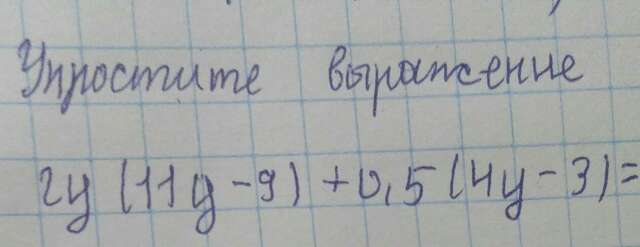 Упростите выражение
2y (11y - 9) + 0,5 (4y - 3) =